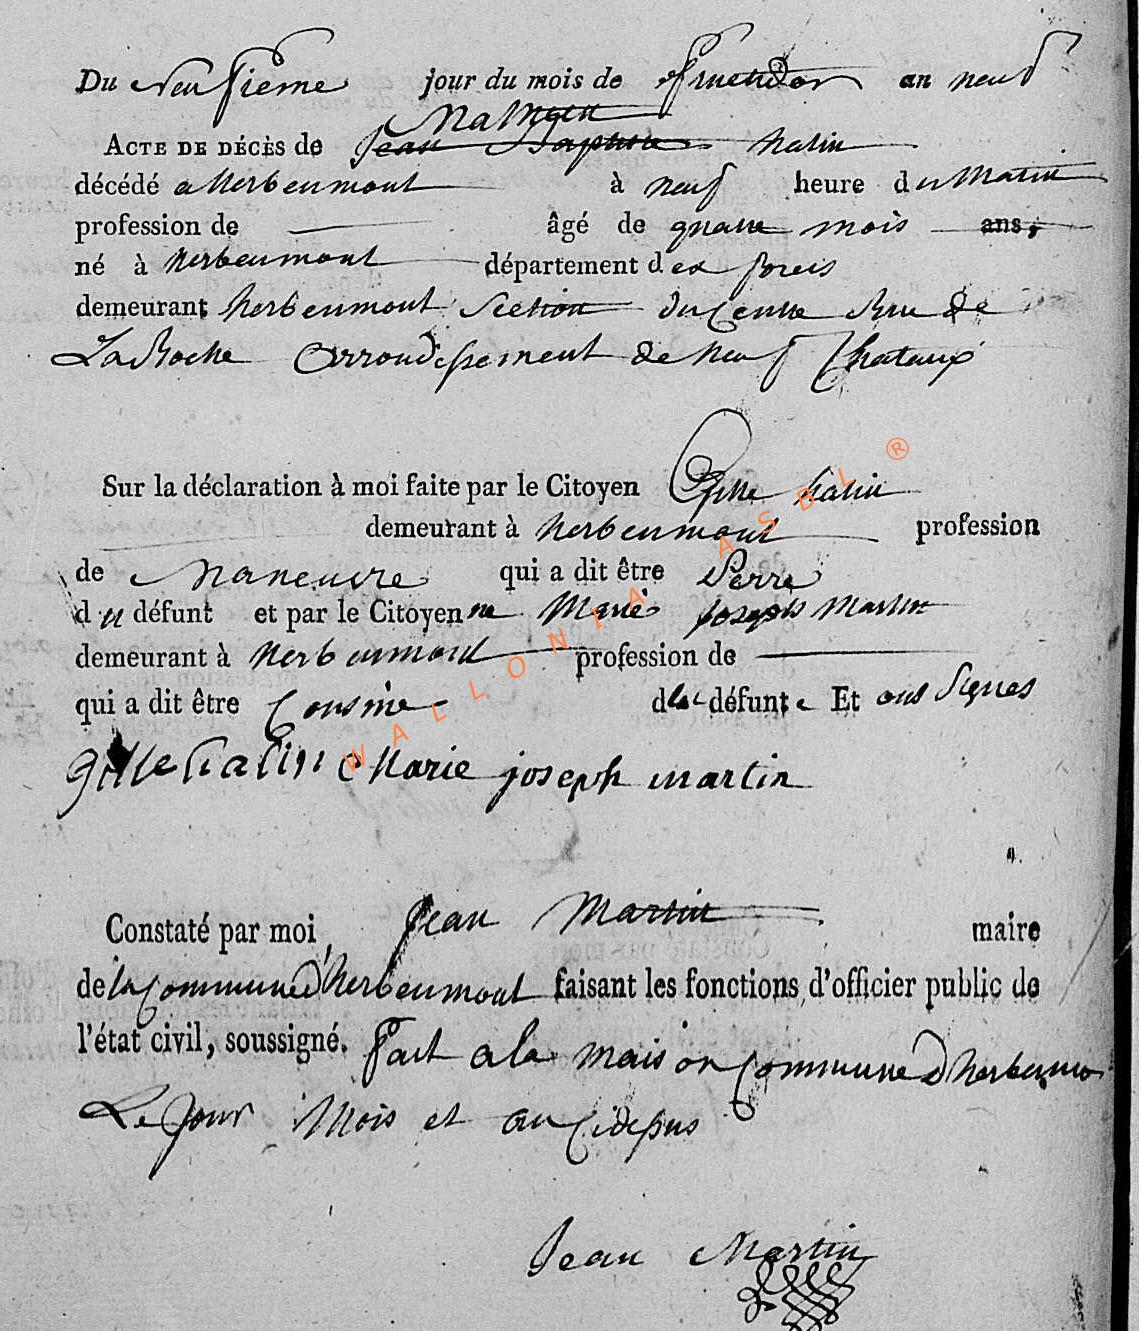 Du neufieme jour du mois de fructidor an neuf
ACTE DE DÉCÈS de Jean Baptiste halin
décédé a herbeumont à neuf heure du Matin
profession de âgé de quatre mois ans,
né à herbeumont département des forets
demeurant herbeumont Section du Centre Rue de
La Roche Arrondissement de neuf Chataux
Sur la déclaration à moi faite par le Citoyen halin
demeurant à herbeumont profession
de Maneuvre qui a dit être Perre
du défunt et par le Citoyenne Marie joseph Martin
demeurant à herbeumont profession de
qui a dit être Cousine défunte Et ons Signes
gille halin Marie joseph martin
Constaté par moi, Jean Martin maire
de la Commune d'herbeumont faisant les fonctions d'officier public de
l'état civil, soussigné. Fait a la maison Commune d'herbeumo
Le jour Mois et an Cidesus
Jean Martin
WALLONIA ASBL ®